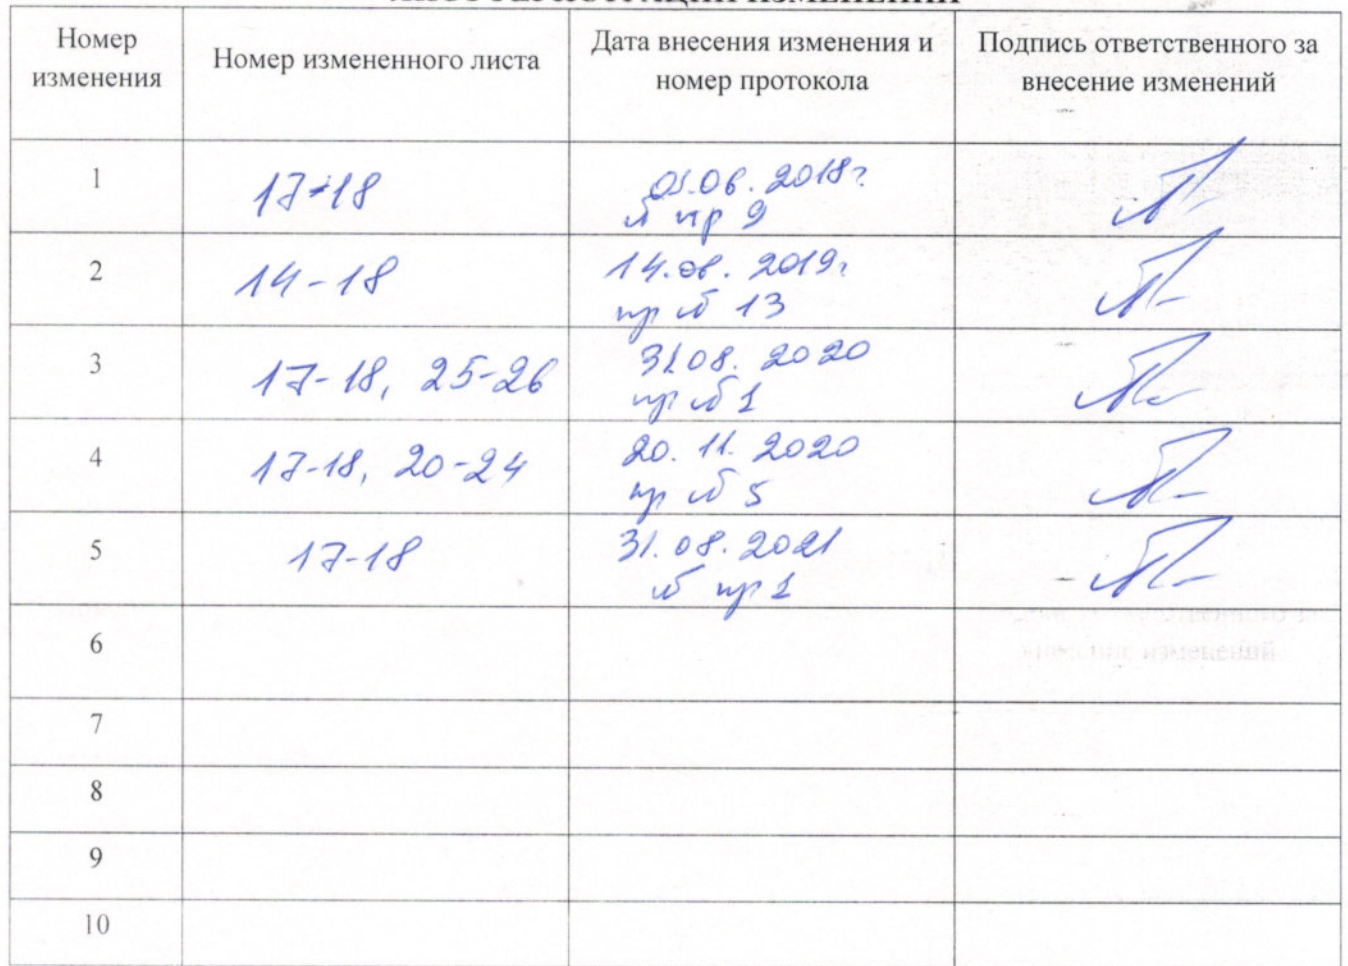 ЛИСТ РЕГИСТРАЦИИ ИЗМЕНЕНИЙ
Номер изменения
Номер измененного листа
Дата внесения изменения и номер протокола
Подпись ответственного за внесение изменений
1
17-18
2018г
№ пр 9
2
14-18
2019г
пр № 13
3
17-18, 25-26
31.08. 2020
пр № 1
4
17-18, 20-24
20. 11. 2020
пр № 5
5
17-18
31.08.2021
№ пр 1
6
7
8
9
10